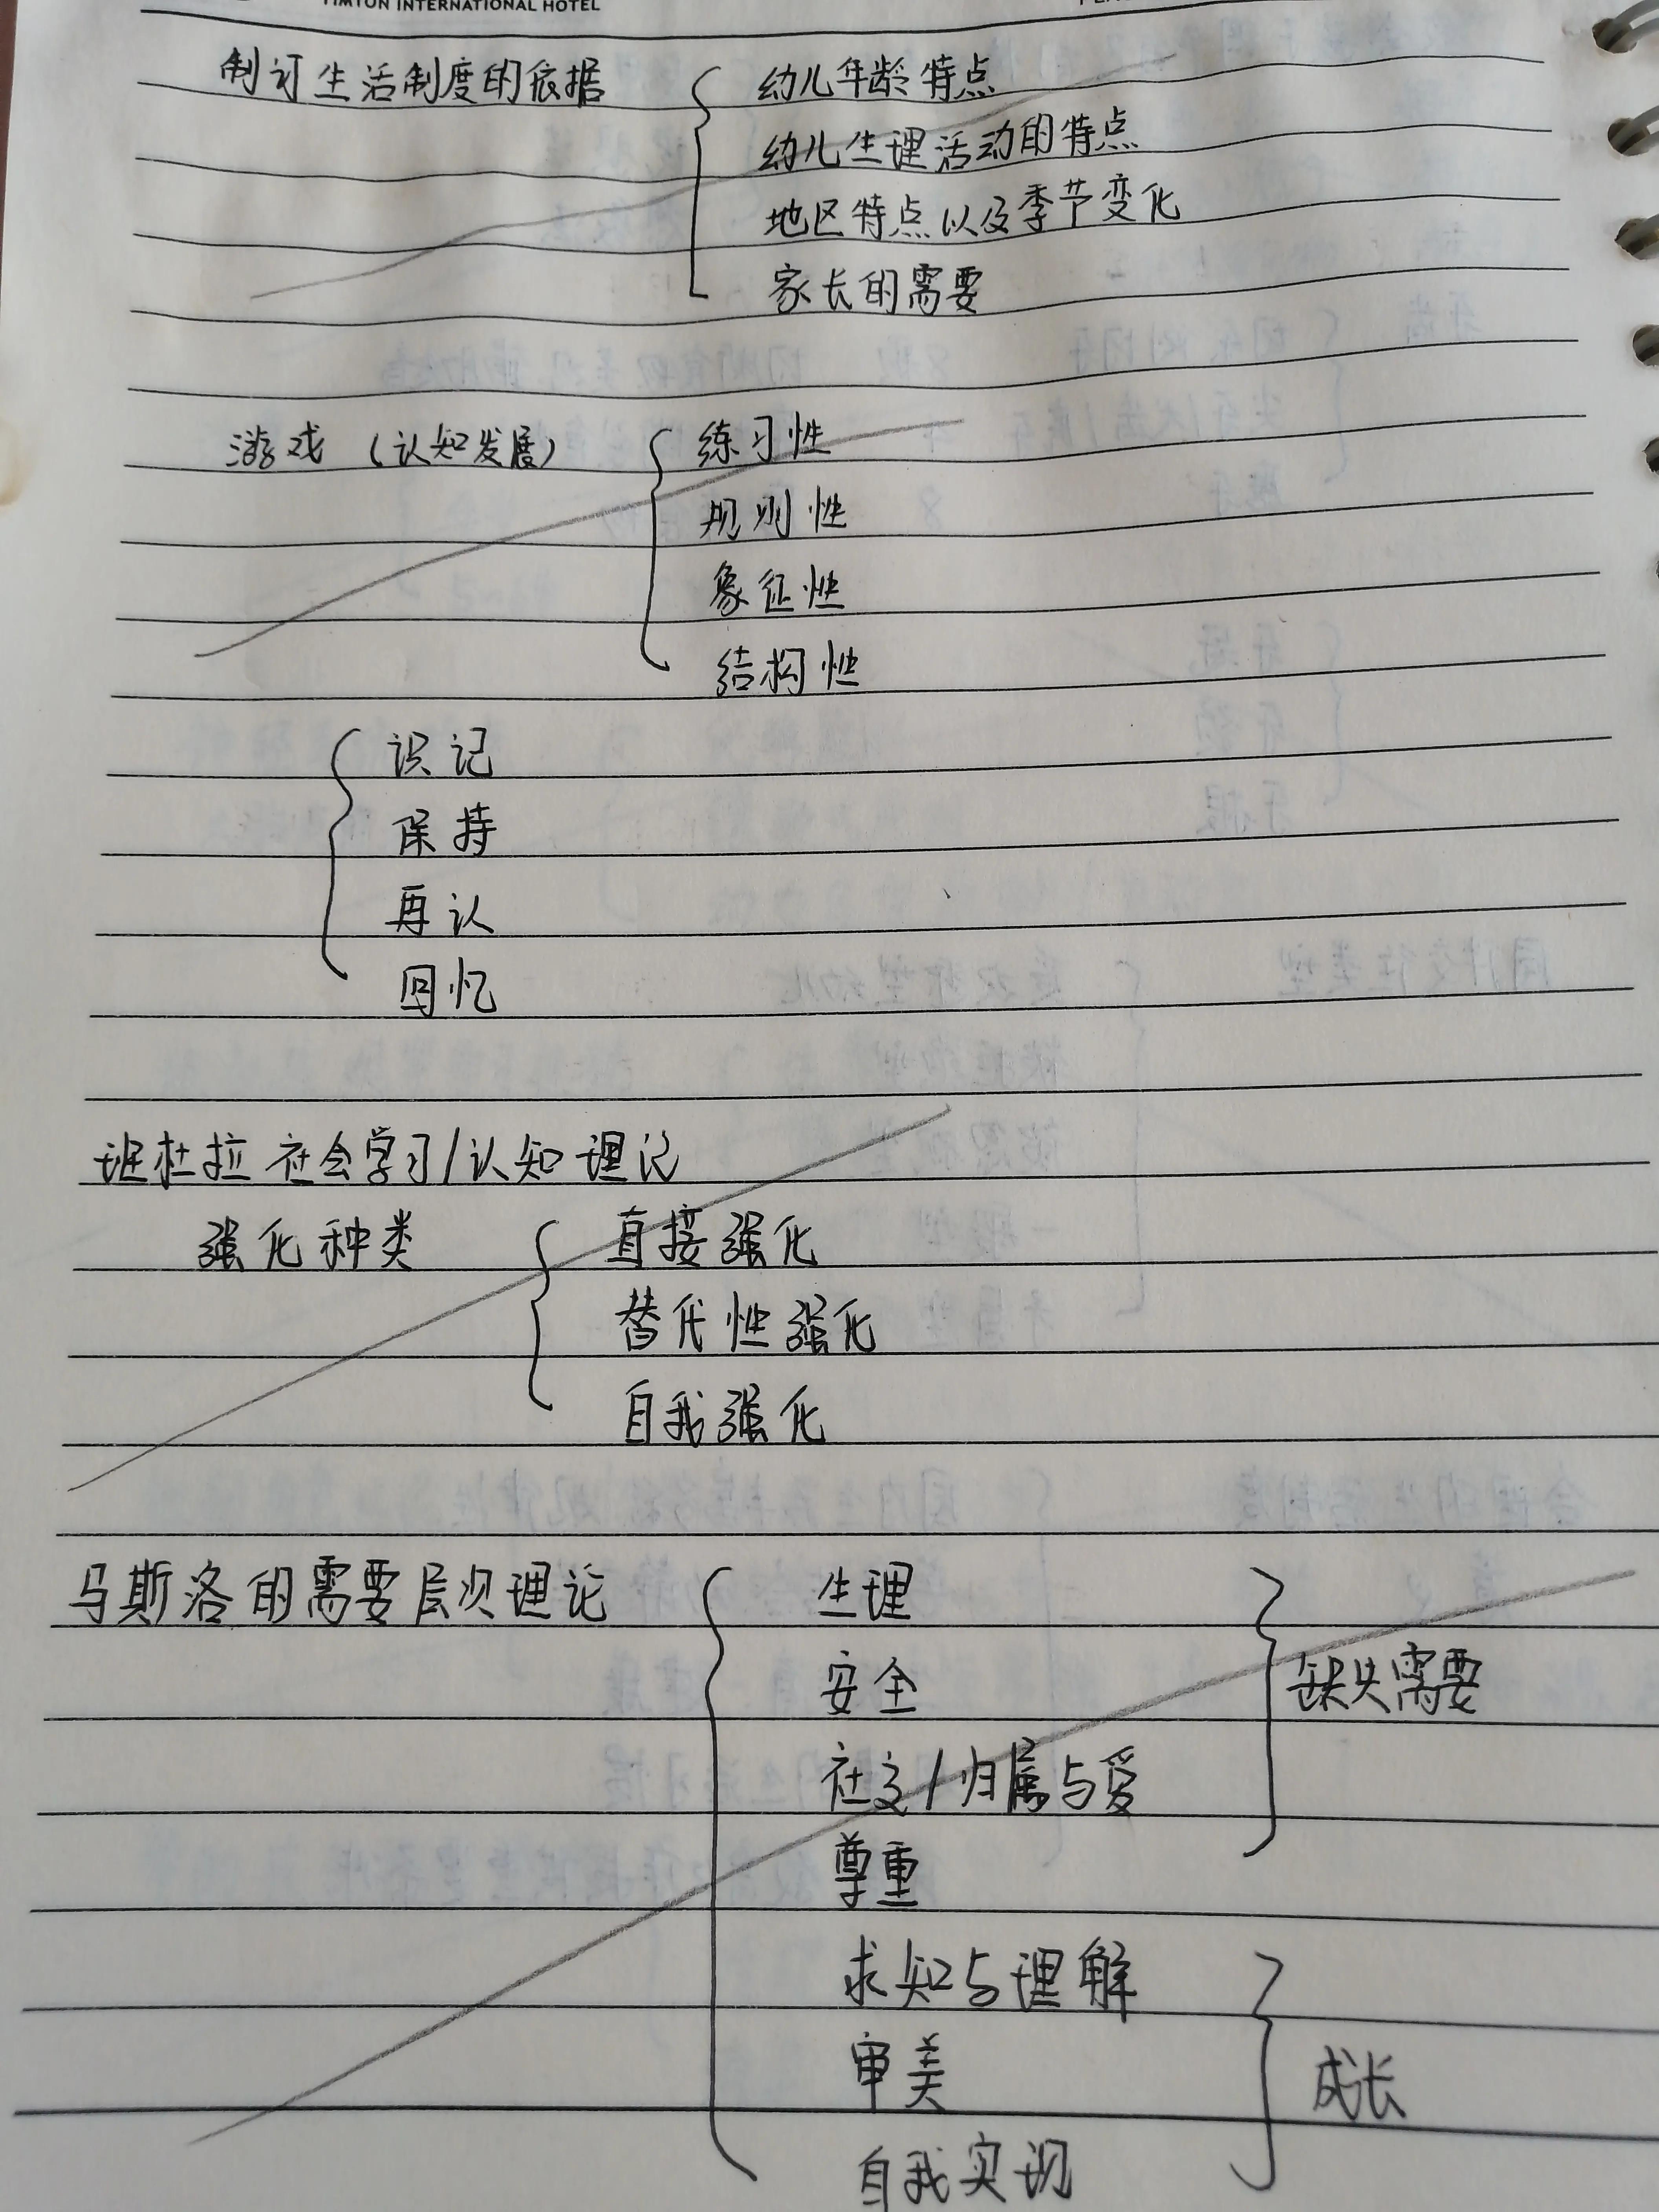 TIMTON INTERNATIONAL HOTEL
制订生活制度的依据 幼儿年龄特点
幼儿生理活动的特点
地区特点以及季节变化
家长的需要
游戏（认知发展） 练习性
规则性
象征性
结构性
识记
保持
再认
回忆
班杜拉 社会学习/认知理论
强化种类 直接强化
替代性强化
自我强化
马斯洛的需要层次理论 生理
安全 缺失需要
社交/归属与爱
尊重
求知与理解
审美 成长
自我实现